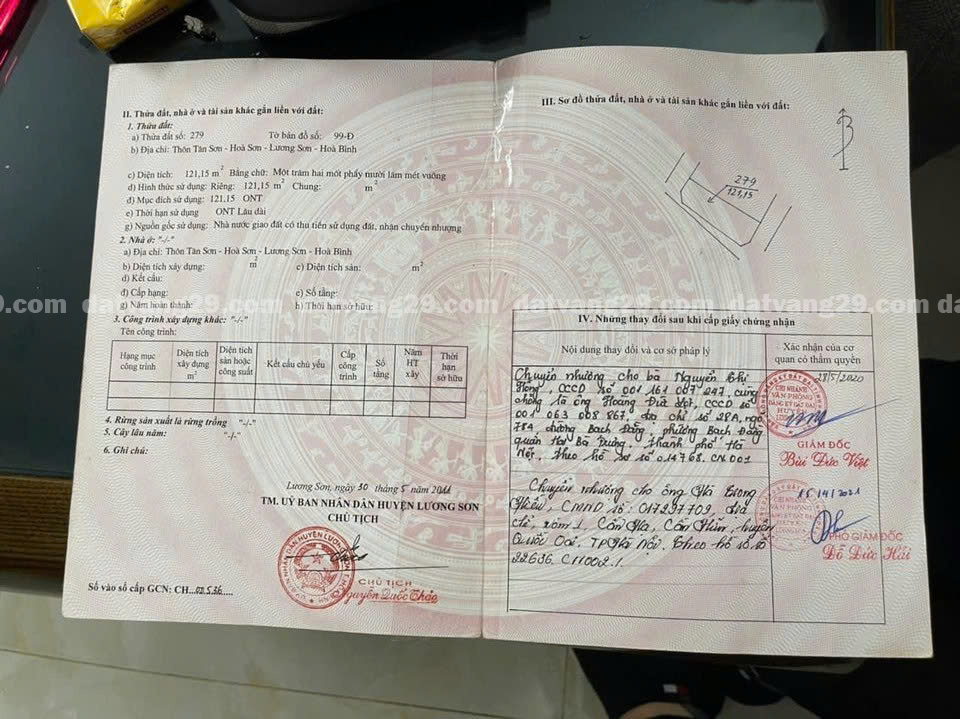 II. Thửa đất, nhà ở và tài sản khác gắn liền với đất:
1. Thửa đất:
a) Thửa đất số: 279 Tờ bản đồ số: 99-Đ
b) Địa chỉ: Thôn Tân Sơn - Hoà Sơn - Lương Sơn - Hoà Bình
c) Diện tích: 121,15 m² Bằng chữ: Một trăm hai mốt phẩy mười lăm mét vuông
d) Hình thức sử dụng: Riêng: 121,15 m² Chung: m²
đ) Mục đích sử dụng: 121,15 ONT
e) Thời hạn sử dụng ONT Lâu dài
g) Nguồn gốc sử dụng: Nhà nước giao đất có thu tiền sử dụng đất, nhận chuyển nhượng
2. Nhà ở: "-/-"
a) Địa chỉ: Thôn Tân Sơn - Hoà Sơn - Lương Sơn - Hoà Bình
b) Diện tích xây dựng: m² c) Diện tích sàn: m²
d) Kết cấu:
đ) Cấp hạng: e) Số tầng:
g) Năm hoàn thành: h) Thời hạn sở hữu:
3. Công trình xây dựng khác: "-/-"
Tên công trình:
Hạng mục công trình
Diện tích xây dựng m²
Diện tích sàn hoặc công suất
Kết cấu chủ yếu
Cấp công trình
Số tầng
Năm HT xây
Thời hạn sở hữu
4. Rừng sản xuất là rừng trồng "-/-"
5. Cây lâu năm: "-/-"
6. Ghi chú:
Lương Sơn, ngày 30 tháng 5 năm
TM. UỶ BAN NHÂN DÂN HUYỆN LƯƠNG SƠN
CHỦ TỊCH
CHỦ TỊCH
Nguyễn Quốc Thác
Số vào sổ cấp GCN: CH
III. Sơ đồ thửa đất, nhà ở và tài sản khác gắn liền với đất:
B
279
121,15
datvang29.com
IV. Những thay đổi sau khi cấp giấy chứng nhận
Nội dung thay đổi và cơ sở pháp lý
Xác nhận của cơ quan có thẩm quyền
Chuyển nhượng cho bà Nguyễn Thị
Hồng, CCCD số 001 161 007 247, cùng
chồng là ông Hoàng Đức, CCCD số
001 063 008 867, địa chỉ số 28A, ngõ
784 đường Bạch Đằng, phường Bạch Đằng
quận Hai Bà Trưng, thành phố Hà
Nội, theo hồ sơ số 014768.CN001
28/5/2020
CHI NHÁNH
VĂN PHÒNG
ĐĂNG KÝ ĐẤT ĐAI
GIÁM ĐỐC
Bùi Đức Việt
Chuyển nhượng cho ông Hà Trọng
CMND số: 017297709, địa
chỉ: xóm 1, Cấn Hạ, Cấn Hữu, huyện
Quốc Oai, TP Hà Nội. Theo hồ sơ số
22636.CN002.
15/4/2021
PHÓ GIÁM ĐỐC
Đỗ Đức Hải